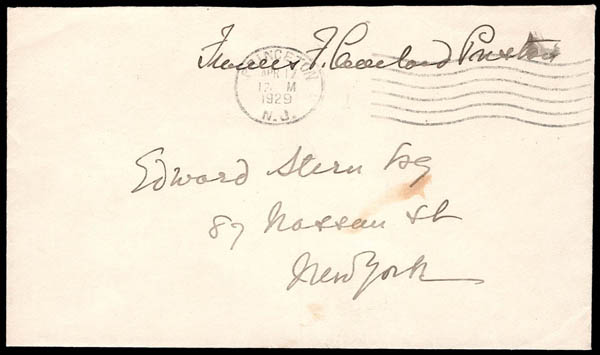 Frances F. Cleveland Preston
PRINCETON
APR 17
12 M
1929
N.J.
Edward Stern Esq
87 Nassau St
New York